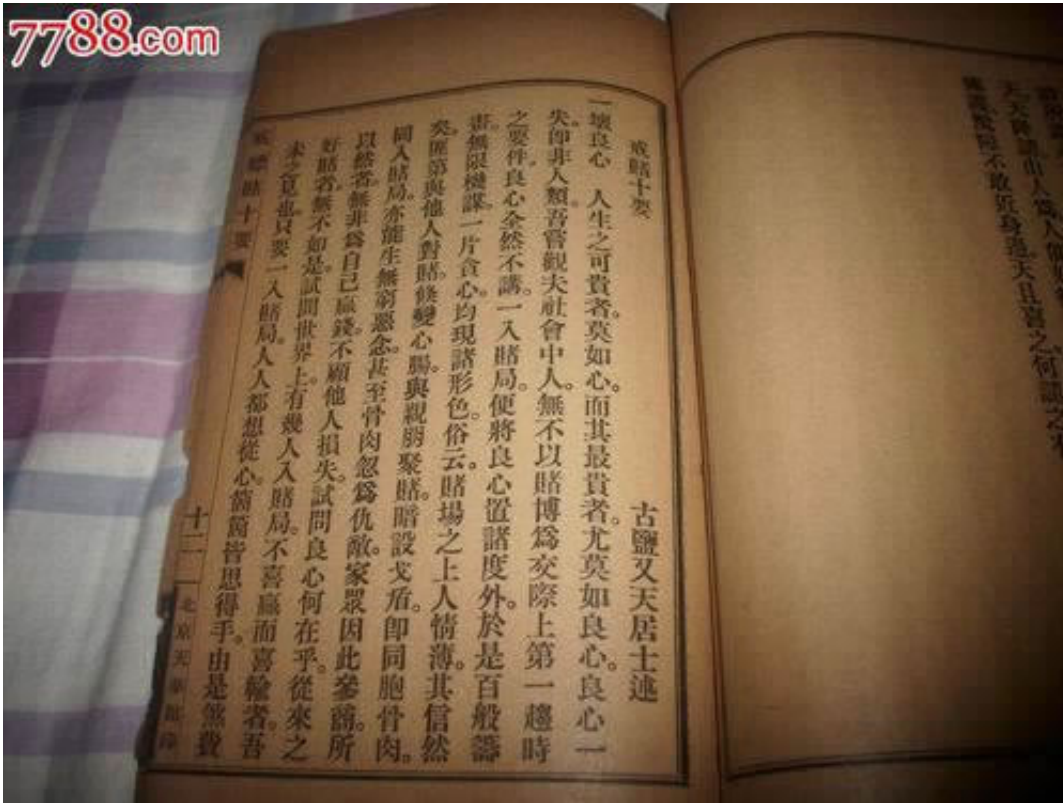 7788.com
不敢近身過天且喜之何
戒賭十要
古鹽又天居士述
一壞良心　人生之可貴者。莫如心。而其最貴者。尤莫如良心。良心一
失。即非人類。吾嘗觀夫社會中人。無不以賭博爲交際上第一趨時
之要件。良心全然不講。一入賭局。便將良心置諸度外。於是百般籌
畫。無限機謀。一片貪心。均現諸形色。俗云。賭場之上人情薄。其信然
矣。匪第與他人對賭。倏變心腸。與親朋聚賭。暗設戈矛。即同胞骨肉。
同入賭局。亦能生無窮惡念。甚至骨肉忽爲仇敵。家眾因此參商。所
以然者。無非爲自己贏錢。不顧他人損失。試問良心何在乎。從來之
好賭者。無不如是。試問世界上有幾人入賭局。不喜贏而喜輸者。吾
未之見也。只要一入賭局。人人都想從心。箇箇皆思得手。由是煞費
賭十要
十二
北京天華館印